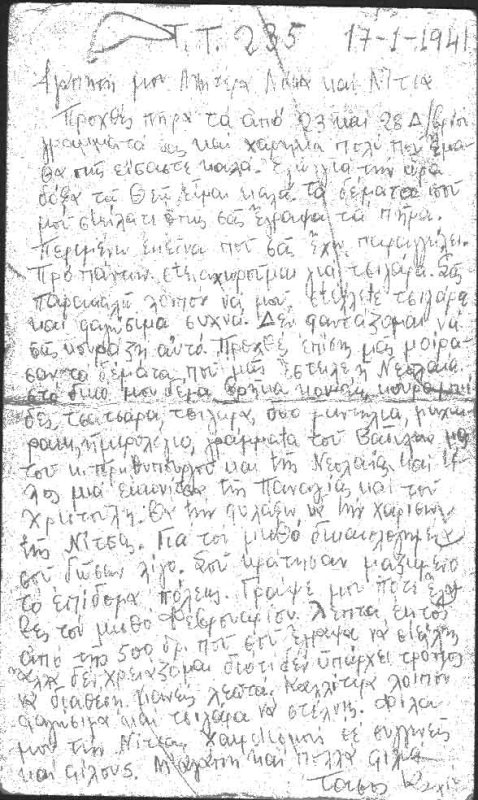 Τ.Τ. 235 17-1-1941
Αγαπητή μου Μητέρα και Νίτσα
Προχθές πήρα τα από 23 και 28 Δ/βρίου
γράμματά σας και χάρηκα πολύ που έμα-
θα πως είσαστε καλά. Εγώ για την ώρα
δόξα τω Θεώ είμαι καλά. Τα δέματα που
μου στείλατε όπως σας έγραψα τα πήρα.
Περιμένω εκείνα που σας έχω παραγγείλει.
Προπάντων στενοχωρούμαι για τσιγάρα. Σας
παρακαλώ λοιπόν να μου στέλλετε τσιγάρα
και φαγώσιμα συχνά. Δεν φαντάζομαι να
σας κουράζη αυτό. Προχθές επίσης μας μοίρα-
σαν τα δέματα που μας έστειλε η Νεολαία
στο δικό μου δέμα βρήκα κονιάκ, κουραμπιέ-
δες, τσατσάρα, τσιγάρα, δυο μαντήλια,
ημερολόγιο, γράμματα του Βασιλέως μας
του κ. πρωθυπουργού και της Νεολαίας και τέ-
λος μια εικονίτσα της Παναγίας και του
Χριστούλη. Θα την φυλάξω να την χαρίσω
της Νίτσας. Για τον μισθό
σου δώσαν λίγο. Σου κράτησαν
το επίδομα πόλεως. Γράψε μου πότε έλα-
βες τον μισθό Φεβρουαρίου. Λεπτά εκτός
από της 500 δρ. που σου έγραψα να στείλης
άλλα δεν χρειάζομαι διότι δεν υπάρχει τρόπος
να διαθέση κανείς λεπτά. Καλλίτερα λοιπόν
φαγώσιμα και τσιγάρα να στέλνης. Φίλα
μου την Νίτσα, χαιρετισμούς σε συγγενείς
και φίλους. Μ' αγάπη και πολλά φιλιά